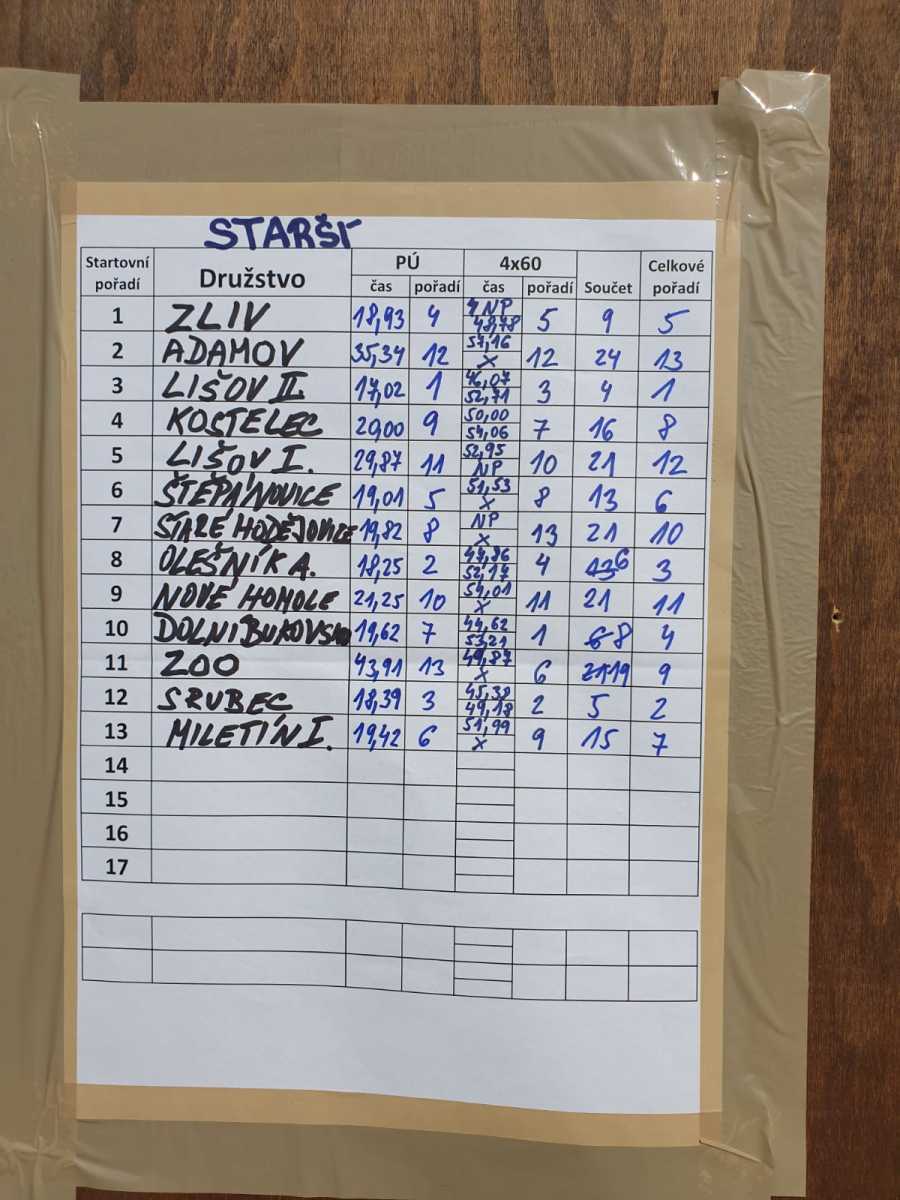 STARŠÍ
Startovní pořadí Družstvo PÚ 4x60 Součet Celkové pořadí
čas pořadí čas pořadí
1 ZLIV 18,93 4 NP 48,78 5 9 5
2 ADAMOV 35,34 12 57,16 X 12 24 13
3 LIŠOV II. 17,02 1 46,07 52,71 3 4 1
4 KOSTELEC 20,00 9 50,00 54,06 7 16 8
5 LIŠOV I. 29,87 11 52,95 NP 10 21 12
6 ŠTĚPÁNOVICE 19,01 5 51,53 X 8 13 6
7 STARÉ HODĚJOVICE 19,82 8 NP X 13 21 10
8 OLEŠNÍK A. 18,25 2 47,86 52,17 4 6 3
9 NOVÉ HOMOLE 21,25 10 54,01 X 11 21 11
10 DOLNÍ BUKOVSKO 19,62 7 44,62 53,21 1 8 4
11 ZOO 43,91 13 49,87 X 6 19 9
12 SRUBEC 18,39 3 45,38 49,18 2 5 2
13 MILETÍN I. 19,42 6 51,99 X 9 15 7
14
15
16
17